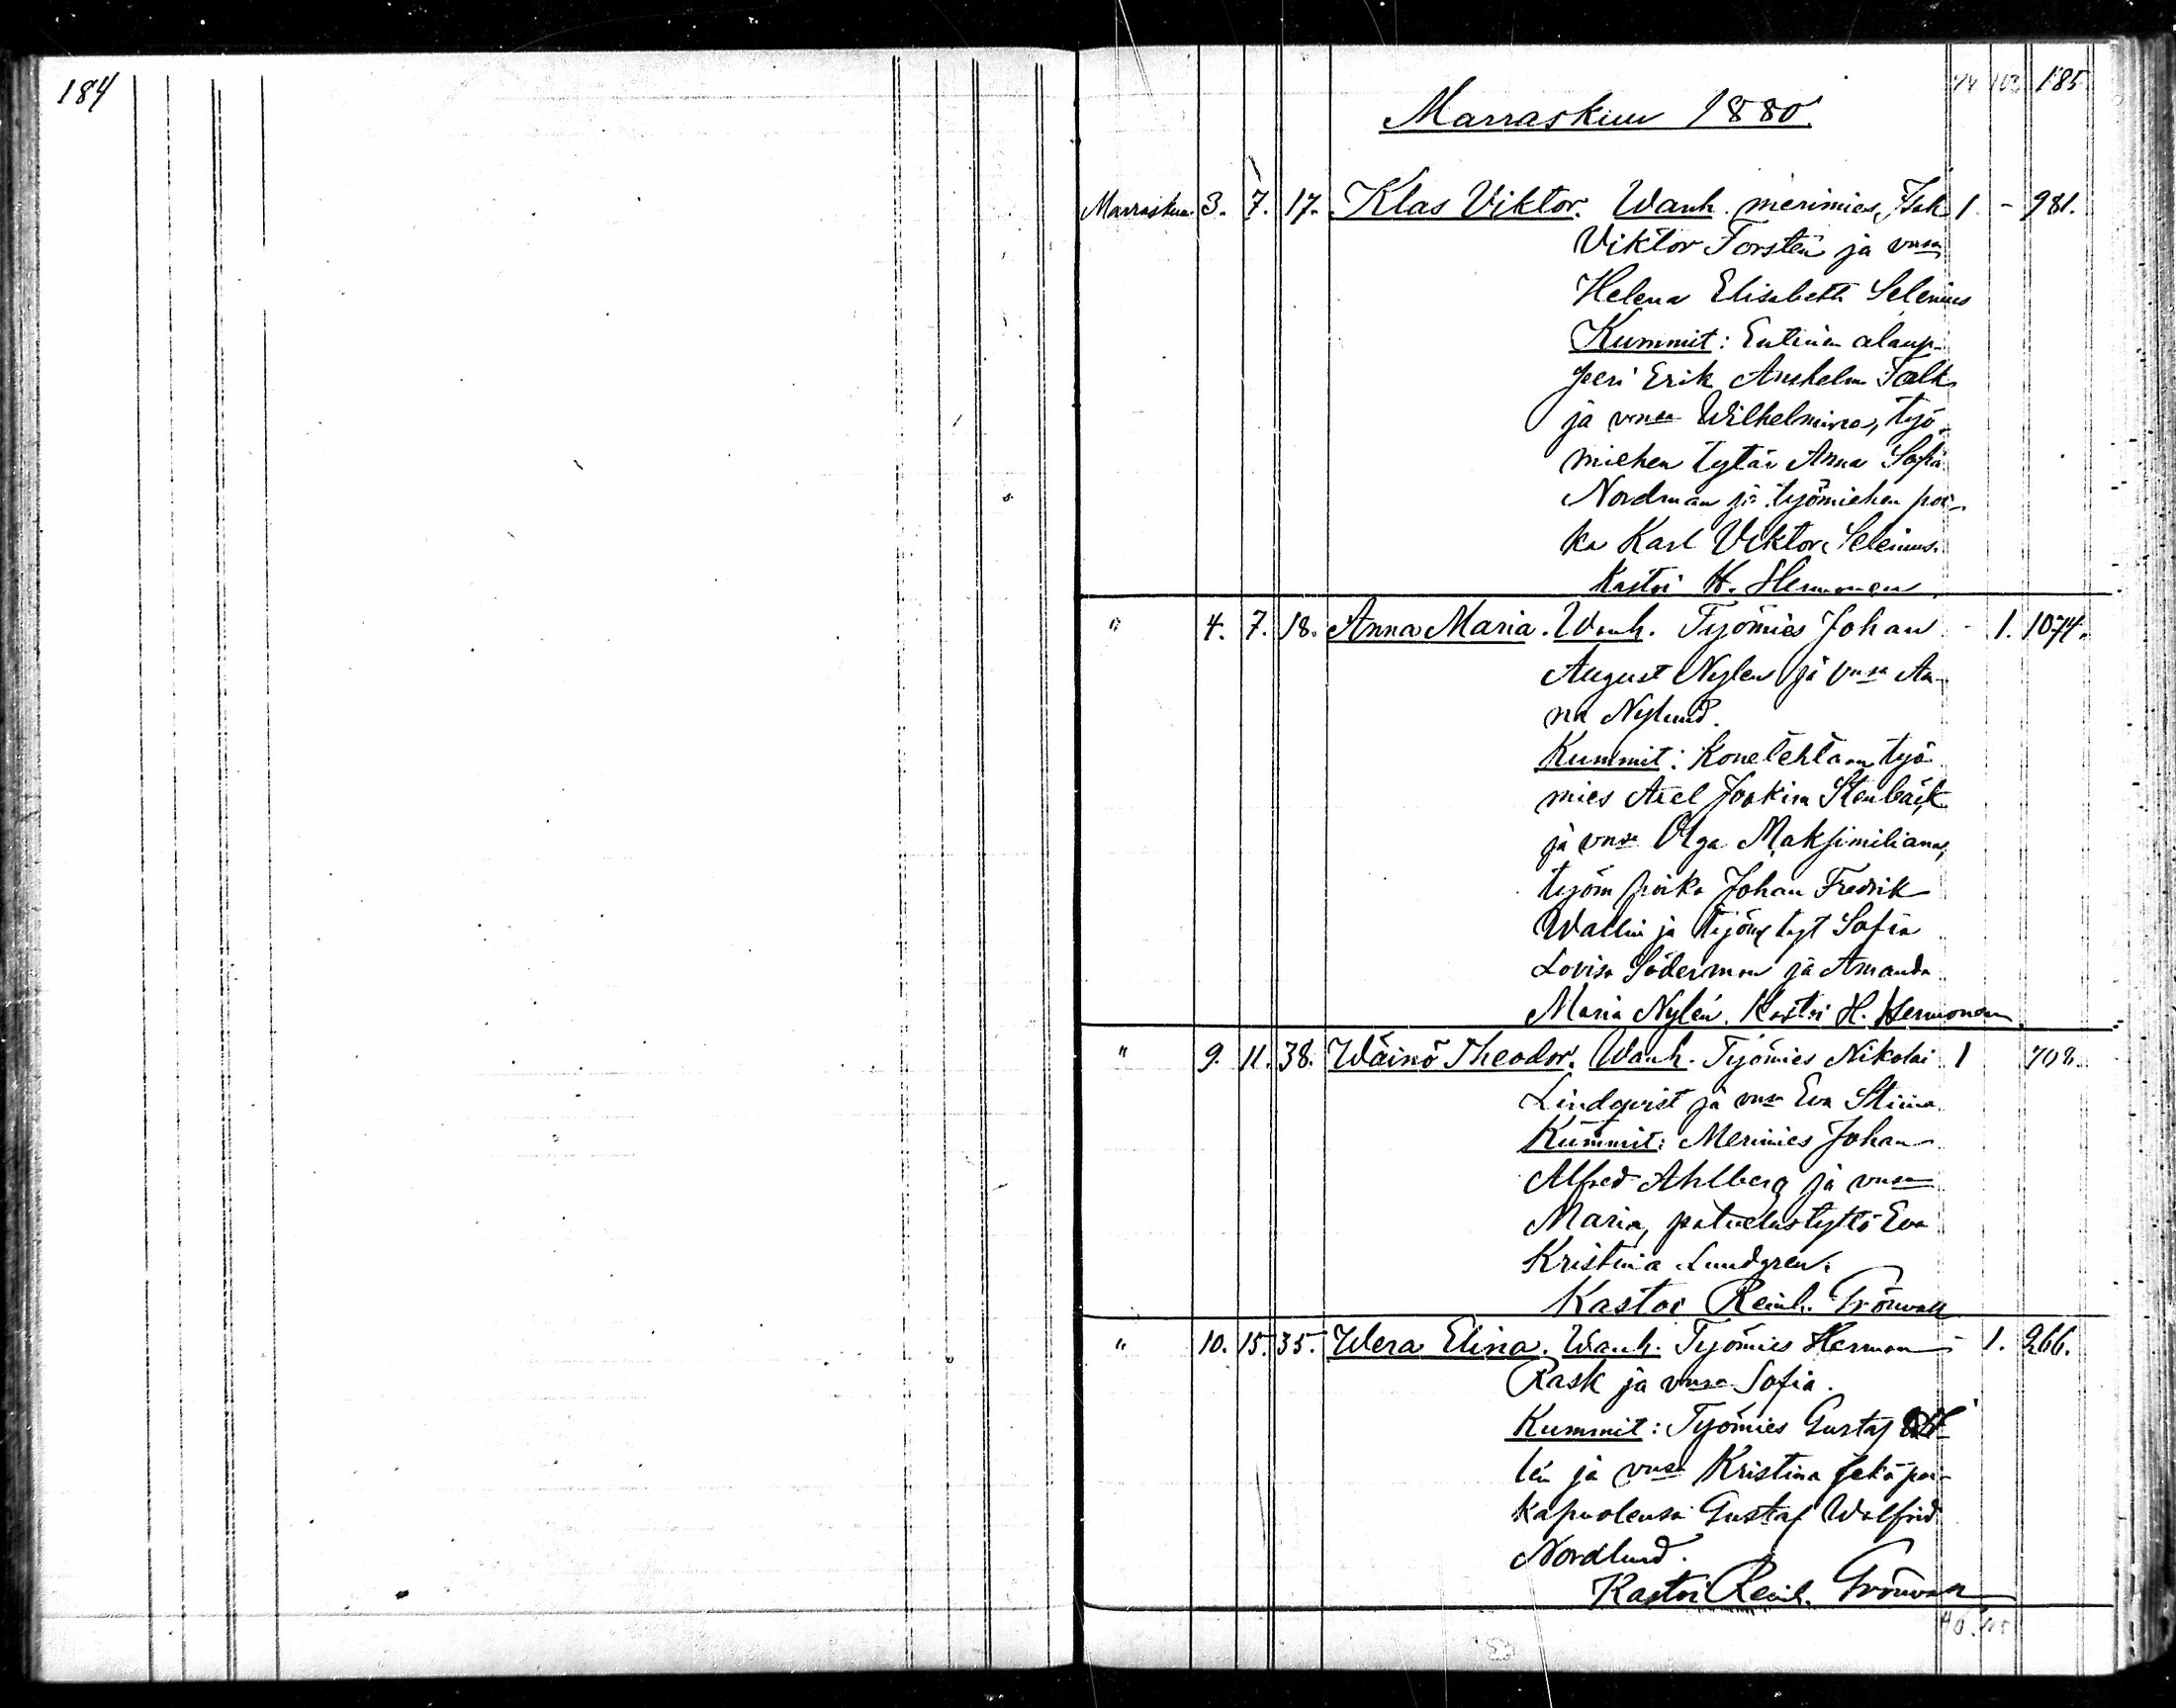 184
185
Marraskuu 1880.
Marraskuu 3. 7. 17. Klas Viktor. Wanh. merimies, Isak 1 - 981.
Viktor Forstén ja vmsa
Helena Elisabeth Selenius
Kummit: Entinen alaup-
seri Erik Anshelm Falk
ja vmsa Wilhelmina, työ-
miehen tytär Anna Sofia
Nordman ja työmiehen poi-
ka Karl Viktor Selenius.
Kastoi H. Hermonen
" 4. 7. 18. Anna Maria. Wanh. Työmies Johan - 1. 1074.
August Nylen ja vmsa An-
na Nylund.
Kummit: Konetehtaan työ
mies Axel Joakim Stenbäck
ja vmsa Olga Maksimiliana,
työm poika Johan Fredrik
Wallin ja työm tyt Sofia
Lovisa Söderman ja Amanda
Maria Nylén. Kastoi H. Hermonen
" 9. 11. 38. Wäinö Theodor. Wanh. Työmies Nikolai 1 708.
Lindqvist ja vmsa Eva Stiina
Kummit: Merimies Johan
Alfred Ahlberg ja vmsa
Maria, palvelustyttö Eva
Kristina Lundgren.
Kastoi Reinh. Grönvall
" 10. 15. 35. Wera Elina. Wanh. Työmies Herman - 1. 266.
Rask ja vmsa Sofia.
Kummit: Työmies Gustaf
lén ja vmsa Kristina sekä poi-
kapuolensa Gustaf Walfrid
Nordlund.
Kastoi Reinh. Grönvall